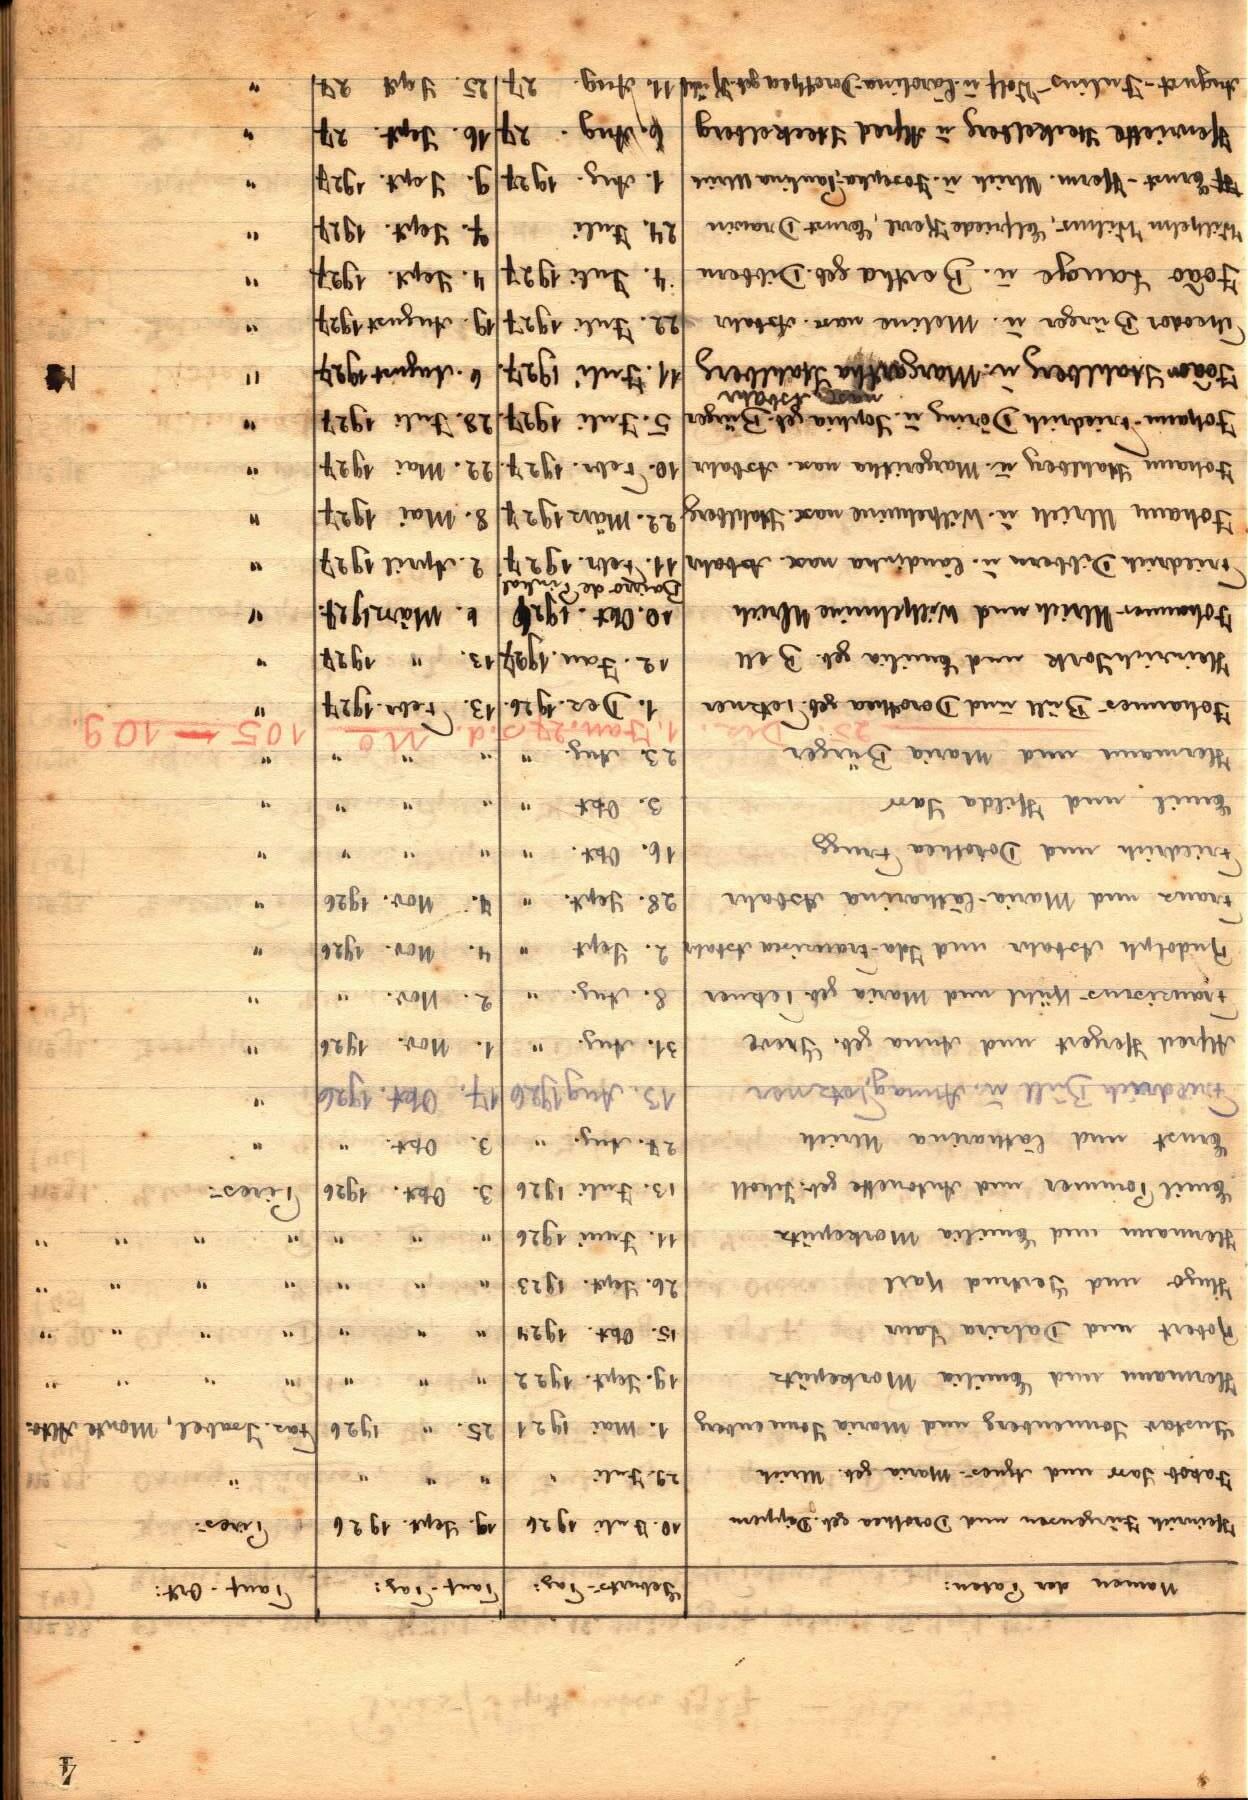 4
Namen der Paten: Geburts-Tag: Tauf-Tag: Tauf-Ort:
Heinrich Jürgensen und Dorothea geb. Dippern 10. Juli 1926 19. Sept. 1926 Pires.
Jakob Jarr und Agnes-Maria geb. Ulrich 29. Juli " " " " "
Gustav Sonnenberg und Maria Sonnenberg 1. Mai 1921 25. " 1926 Faz. Isabel, Monte Alto.
Hermann und Emilia Morkepütz 19. Sept. 1922 " " " " " " "
Robert und Dalvira Laur 15. Okt. 1924 " " " " " " "
Hugo und Gertrud Karl 26. Sept. 1923 " " " " " " "
Hermann und Emilia Morkepütz 11. Juni 1926 " " " " " " "
Emil Pommer und Antonette geb. Scholl 13. Juli 1926 3. Okt. 1926 Pires.
Ernst und Catharina Ulrich 27. Aug. " 3. Okt. " "
Friedrich Büll u. Anna Götzner 13. Aug 1926 17. Okt. 1926 "
Alfred Hergert und Anna geb. Greve 31. Aug. " 1. Nov. 1926 "
Franziscus Kühl und Maria geb. Tetzner 8. Aug. " 2. Nov. " "
Rudolph Asbahr und Ida-Franzisca Asbahr 2. Sept " 4. Nov. 1926 "
Franz und Maria-Catharina Asbahr 28. Sept. " 7. Nov. 1926 "
Friedrich und Dorothea Frugg 16. Okt. " " " " "
Emil und Hilda Jarr 3. Okt " " " " "
Hermann und Maria Bürger 23. Aug. " " " " "
25 Dez. 1. Jan. 27 S.d. No 105 — 109
Johannes Büll und Dorothea geb. Tetzner 1. Dez. 1926. 13. Febr. 1927 "
Heinrich Jork und Emilia geb. Büll 12. Jan. 1927 13. " 1927 "
Johannes Ulrich und Wilhelmine Ulrich 10. Okt. 1926 6. März 1927. "
Bairro de Pinhal
Friedrich Dibbern u. Candinha nasc. Asbahr 11. Febr. 1927 2. April 1927 "
Johann Ulrich u. Wilhelmine nasc. Stahlberg 22. März 1927 8. Mai 1927 "
Johann Stahlberg u. Margeritha nasc. Asbahr 10. Febr. 1927. 22. Mai 1927 "
Johann-Friedrich Döring u. Sophia geb. Bürger 5. Juli 1927. 28. Juli 1927 "
nasc. Asbahr
João Stahlberg u. Margaretha Stahlberg 11. Juli 1927. 6. August 1927 "
Theodor Bürger u. Meline nasc. Asbahr 22. Juli 1927 19. August 1927 "
João Lange u. Bertha geb. Dibbern 4. Juli 1927 4. Sept. 1927 "
Wilhelm Wilms, Elfriede Herrl, Ernst Drawin 24. Juli 7. Sept. 1927 "
Ernst-Herm. Ulrich u. Josepha-Paulina Ulrich 1. Aug. 1927 9. Sept. 1927 "
Henriette Steckelberg u. Alfred Steckelberg 6. Aug. 27 16. Sept. 27 "
August-Julius Wolf u. Carolina-Dorothea geb. Kühl 11. Aug. 27 25. Sept 27 "